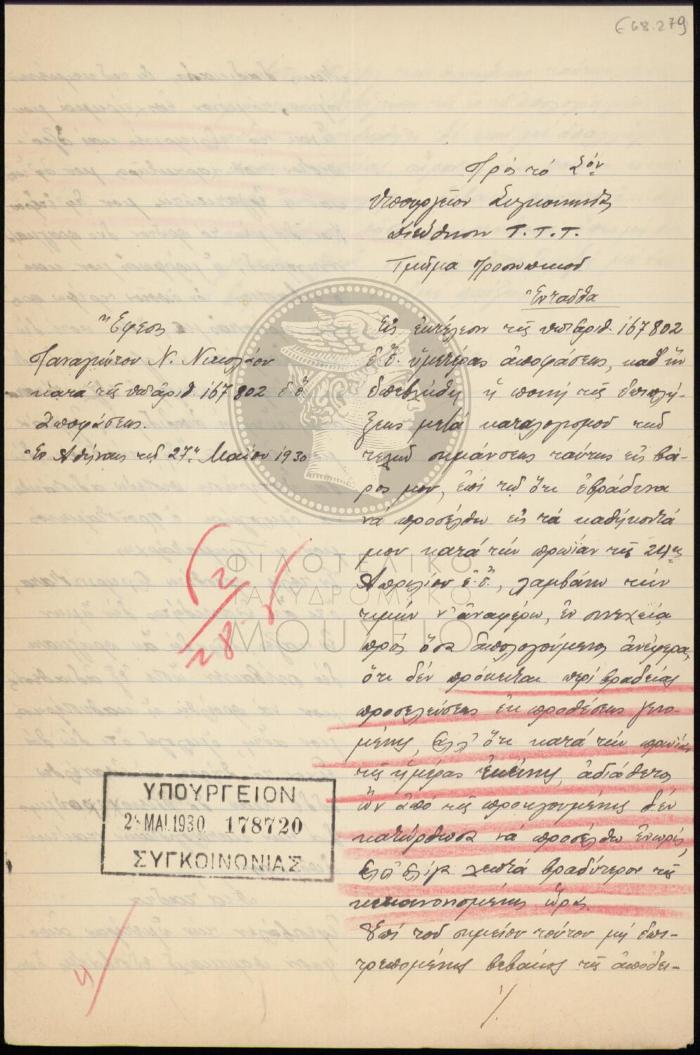 668.279
Πρὸς τὸ Σόν
Ὑπουργεῖον Συγκοινωνίας
Διεύθυνσιν Τ.Τ.Τ.
Τμῆμα Προσωπικοῦ
Ἐνταῦθα
Ἔφεσις
Παναγιώτου Ν. Νικολάου
κατὰ τῆς ὑπ' ἀριθ. 167802 ἐ.ἔ.
ἀποφάσεως.
Ἐν Ἀθήναις τῇ 27ῃ Μαΐου 1930
Εἰς ἐκτέλεσιν τῆς ὑπ' ἀριθ. 167802
ἐ.ἔ. ὑμετέρας ἀποφάσεως, καθ' ἣν
ἐπεβλήθη ἡ ποινὴ τῆς ἐπιπλή-
ξεως μετὰ καταλογισμοῦ τῶν
τελῶν σημάνσεως ταύτης εἰς βά-
ρος μου, ἐπὶ τῷ ὅτι ἐβράδυνα
νὰ προσέλθω εἰς τὰ καθήκοντά
μου κατὰ τὴν πρωΐαν τῆς 24ης
Ἀπριλίου ἐ.ἔ., λαμβάνω τὴν
τιμὴν ν' ἀναφέρω, ἐν συνεχείᾳ
πρὸς ὅσα ἀπολογούμενος ἀνέφερα,
ὅτι δὲν πρόκειται περὶ βραδείας
προσελεύσεως ἐκ προθέσεως γενο-
μένης, ἀλλ' ὅτι κατὰ τὴν πρωΐαν
τῆς ἡμέρας ἐκείνης, ἀδιάθετος
ὢν ἀπὸ τῆς προηγουμένης δὲν
κατώρθωσα νὰ προσέλθω ἐνωρίς,
ἀλλ' ὀλίγα λεπτὰ βραδύτερον τῆς
κεκανονισμένης ὥρας.
Ἐπὶ τοῦ σημείου τούτου μὴ ἐπι-
τρεπομένης βεβαίως τῆς ἀποδεί-
./.
ΦΙΛΟΤΕΛΙΚΟ
ΤΑΧΥΔΡΟΜΙΚΟ
ΜΟΥΣΕΙΟ
ΥΠΟΥΡΓΕΙΟΝ
ΜΑΙ.1930 178720
ΣΥΓΚΟΙΝΩΝΙΑΣ